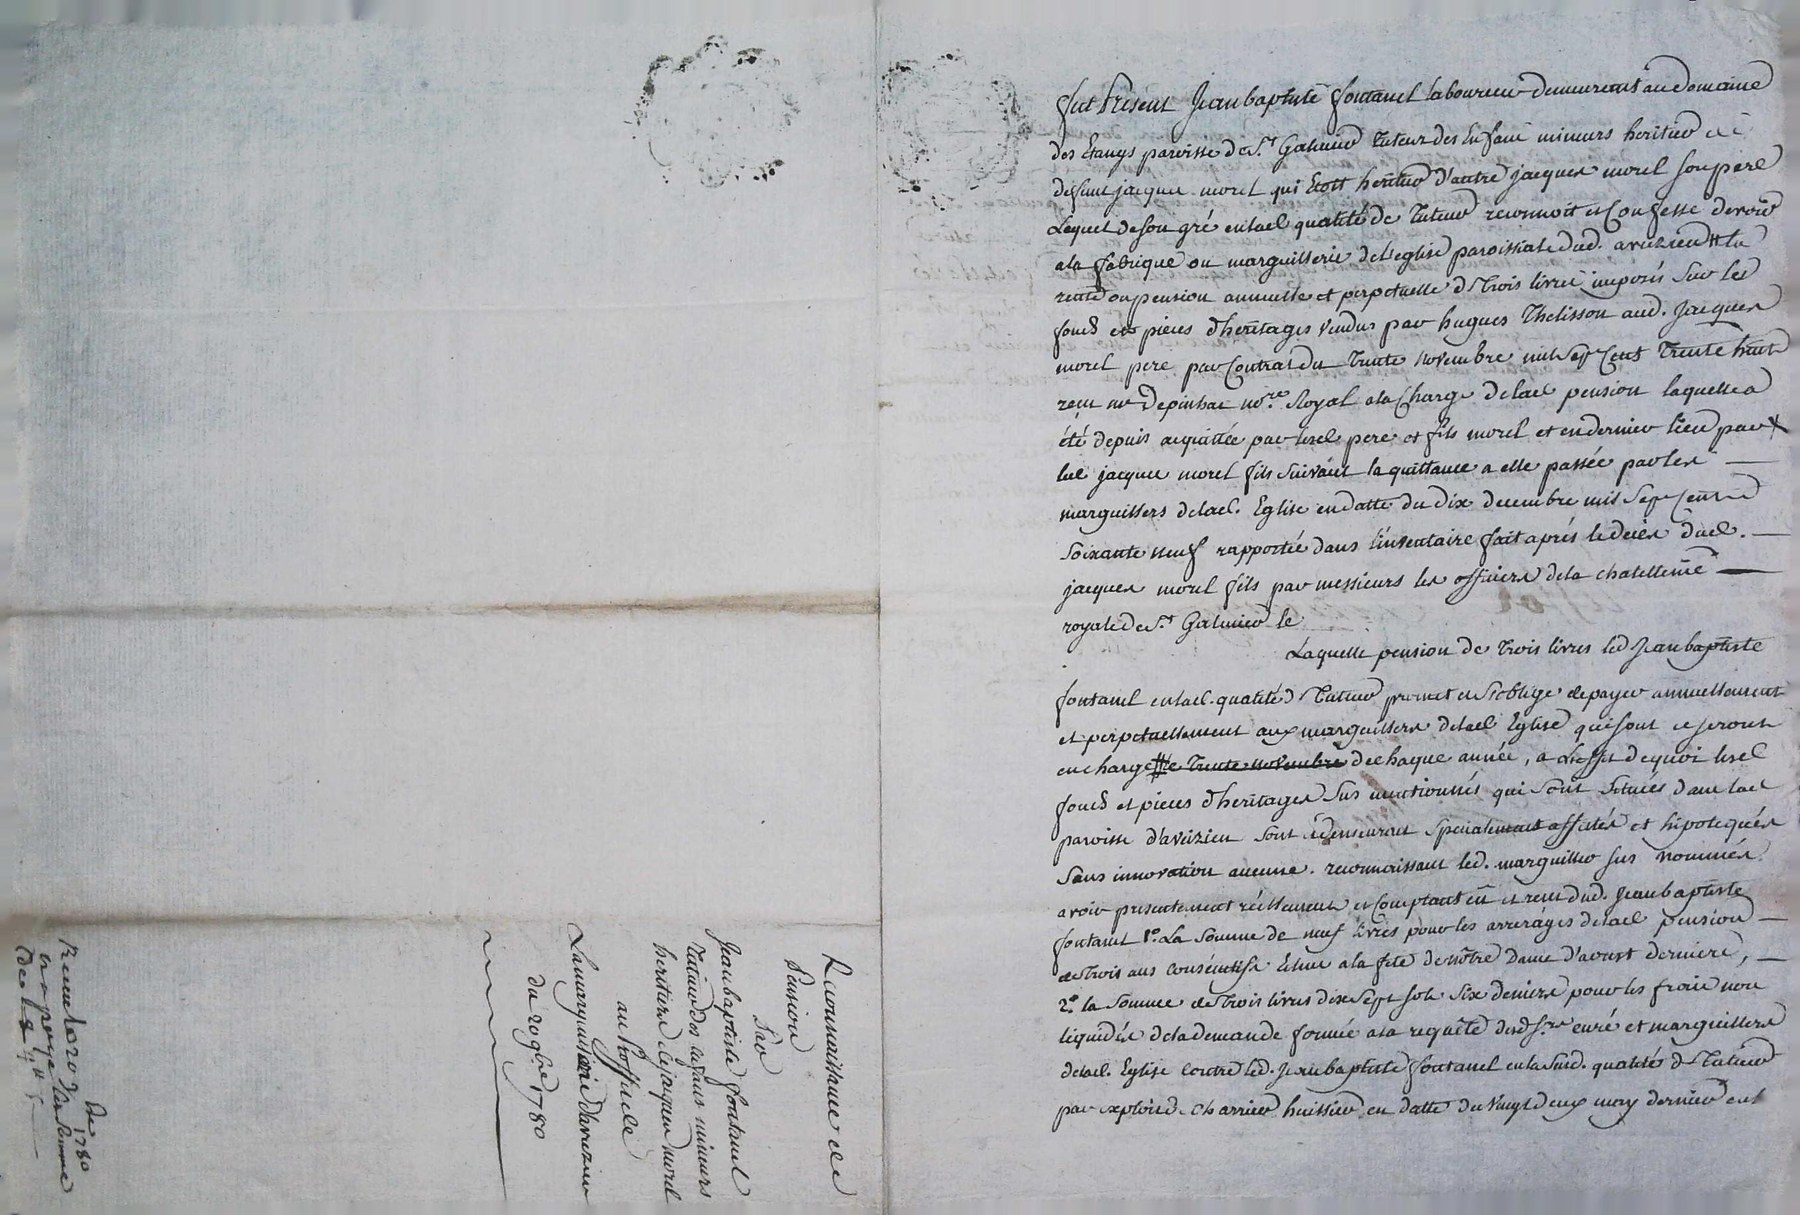 fut Présent Jean baptiste fontanel laboureur demeurant au domaine
des Etangs paroisse de St. Galmier Tuteur des Enfans mineurs heritiers de
defunt jacques morel qui étoit heritier d'autre jacques morel son pere
Lequel de son gré en lad. qualité de Tuteur reconnoit et Confesse devoir
a la fabrique ou marguillerie de l'eglise paroissiale dud. avezieu # la
rente ou pension annuelle et perpetuelle de trois livres imposés Sur les
fonds et pieces d'heritages vendus par hugues Thelisson aud. Jacques
morel pere par Contrat du Trente novembre mil Sept Cent Trente huit
reçu me Depinhac nore. Royal a la Charge de lad. pension laquelle a
été depuis acquittée par lesd. pere et fils morel et en dernier lieu par
led. jacques morel fils Suivant la quittance a elle passée par les
marguilliers de lad. Eglise en datte du dix decembre mil Sept Cent
Soixante neuf rapportée dans l'inventaire fait aprés le decés dud.
jacques morel fils par messieurs les officiers de la chatellenie
royale de St. Galmier le
Laquelle pension de trois livres led. Jean baptiste
fontanel en lad. qualité de Tuteur promet et S'oblige de payer annuellement
et perpetuellement aux marguilliers de lad. Eglise qui sont et seront
en charge # le Trente novembre de chaque année, a L'effet de quoi lesd.
fonds et pieces d'heritages Sus mentionnés qui Sont Situés dans lad.
paroisse d'avezieu Sont et demeurent Specialement affectés et hipotequés
Sans innovation aucune. reconnoissant led. marguillier Sus nommés
avoir presentement réellement et Comptant eu et reçu dud. Jean baptiste
fontanel 1°. La Somme de neuf livres pour les arrerages de lad. pension
de trois ans consécutifs Echue a la fete de nôtre Dame d'aoust derniere,
2°. la Somme de trois livres dix Sept Sols Six deniers pour les frais non
liquidés de la demande formée a la requête desd. Srs. curé et marguilliers
de lad. Eglise contre led. Jean baptiste fontanel en la Susd. qualité de Tuteur
par exploit de Charrier huissier en datte du vingt deux may dernier
Reconnaissance de
Pension
Par
Jean baptiste fontanel
Tuteur des enfans mineurs
heritiers de jacques morel
au Proffit de
La marguillerie d'avezieu
du 20 9bre 1780
De 1780